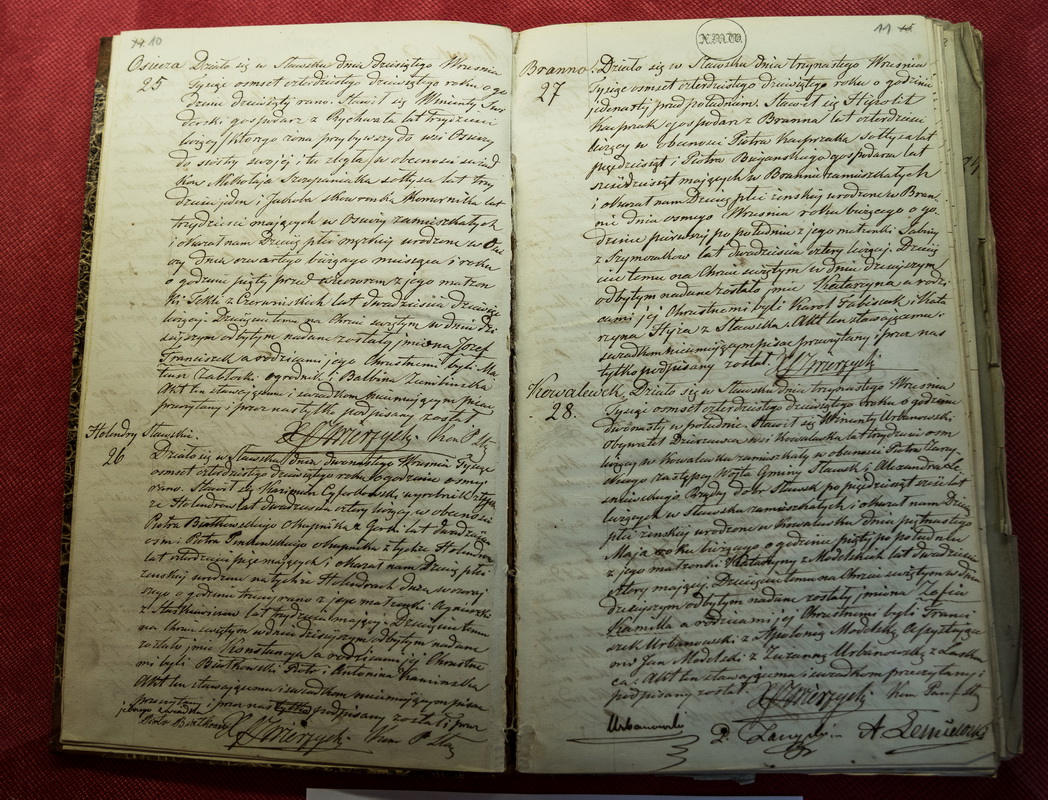 10
Osiorza Działo się w Sławsku dnia dziesiątego Września
25 Tysiąc osmset czterdziestego dziewiątego roku o go
dzinie dziewiątej rano. Stawił się Wincenty
gospodarz z Rychwała lat trzydzieści
liczący którego żona przybywszy do wsi
do siostry swojej i tu zległa w obecności świad
ków Mikołaja Szczepaniaka sołtysa lat trzy
dzieści jeden i Jakoba Skowronka Komornika lat
trzydzieści mających w zamieszkałych
i okazał nam Dziecię płci męzkiej urodzone w
dnia czwartego bieżącego miesiąca i roku
o godzinie piątej przed wieczorem z jego małżon
ki Tekli z Czerwińskich lat dwadzieścia dziewięć
liczącej. Dziecięciu temu na Chrzcie świętym w dniu dzi
siejszym odbytym nadane zostały imiona Józef
Franciszek a rodzicami jego Chrzestnemi byli Ma
teusz ogrodnik i Balbina
Akt ten stawającemu i świadkom nieumiejącym pisać
przeczytany i przez nas tylko podpisany został.
X J Zwierzycki
Holendry Sławskie.
26 Działo się w Sławsku dnia dwunastego Września Tysiąc
osmset czterdziestego dziewiątego roku o godzinie osmej
rano. Stawił się Kazimierz wyrobnik
ze Holendrów lat dwadzieścia cztery liczący w obecności
Piotra Biatkowskiego Okupnika z Gorki lat dwadzieścia
osm i Piotra okupnika z tychże Holendrów
lat mających i okazał nam Dziecię płci
żeńskiej urodzone na tychże Holendrach dnia wczoraj
szego o godzinie trzeciej rano z jego małżonki Agnieszki
z lat trzydzieści mającej. Dziecięciu temu
na Chrzcie świętym w dniu dzisiejszym odbytym nadane
zostało imie Konstancya a rodzicami jej Chrzestne
mi byli Biatkowski Piotr i Antonina Kaminska
Akt ten stawającemu i świadkom nieumiejącym pisać
przeczytany i przez nas podpisany został i przez
jednego świadka
Piotr Biatkowski X J Zwierzycki
11
Branno. Działo się w Sławsku dnia trzynastego Września
27 Tysiąc osmset czterdziestego dziewiątego roku o godzinie
jedenastej przed południem. Stawił się Hipolit
Kasprzak gospodarz z Branna lat czterdzieści
liczący w obecności Piotra Kasprzaka sołtysa lat
pięćdziesiąt i Piotra gospodarza lat
sześćdziesiąt mających w Brannie zamieszkałych
i okazał nam Dziecię płci żeńskiej urodzone w Bran
nie dnia osmego Września roku bieżącego o go
dzinie pierwszej po południu z jego małżonki Sabiny
z Szymonków lat dwadzieścia cztery liczącej. Dziecię
ciu temu na Chrzcie świętym w dniu dzisiejszym
odbytym nadane zostało imie Katarzyna a rodzi
cami jej Chrzestnemi byli Karol Fabisiak i Kata
rzyna Hyża z Sławska. Akt ten stawającemu i
świadkom nieumiejącym pisać przeczytany i przez nas
tylko podpisany został. X J Zwierzycki
Kowalewek. Działo się w Sławsku dnia trzynastego Września
28. Tysiąc osmset czterdziestego dziewiątego roku o godzinie
dwunastej w południe. Stawił się Wincenty Urbanowski
obywatel Dzierzawca wsi Kowalewka lat trzydzieści osm
liczący w Kowalewku zamieszkały w obecności Piotra
Zastępcy Wojta Gminy Sławsk i Alexandra Le
Rządcy dobr Sławsk po pięćdziesiąt sześć lat
liczących w Sławsku zamieszkałych i okazał nam Dziecię
płci żeńskiej urodzone w Kowalewku dnia piętnastego
Maja roku bieżącego o godzinie piątej po południu
z jego małżonki Katarzyny z Modelskich lat dwadzieścia
cztery mającej. Dziecięciu temu na Chrzcie świętym w dniu
dzisiejszym odbytym nadane zostały imiona Zofia
Kamilla a rodzicami jej Chrzestnemi byli Franci
szek Urbanowski z Apolonią Modelską Assystują
cemi Jan Modelski z Zuzanną Urbanowską z
Akt ten stawającemu i świadkom przeczytany i
podpisany został. X J Zwierzycki
Urbanowski